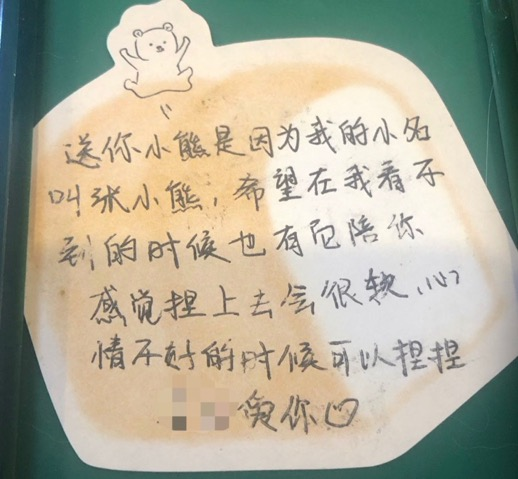 送你小熊是因为我的小名
叫张小熊，希望在我看不
到的时候也有它陪你
感觉捏上去会很软，心
情不好的时候可以捏捏
爱你